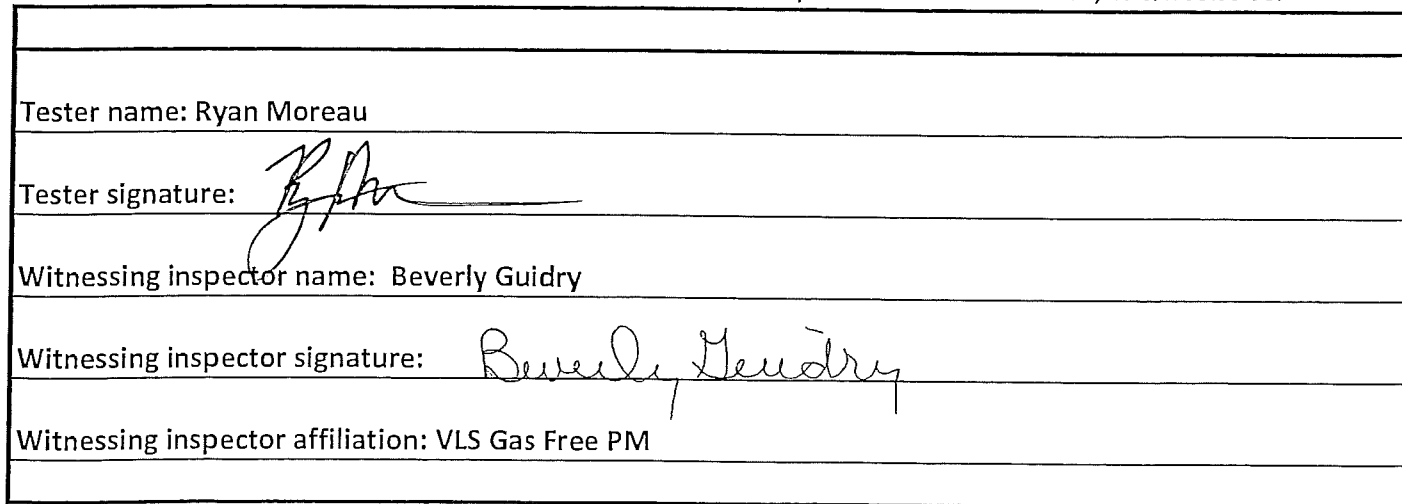 Tester name: Ryan Moreau
Tester signature:
Witnessing inspector name: Beverly Guidry
Witnessing inspector signature: Beverly Guidry
Witnessing inspector affiliation: VLS Gas Free PM